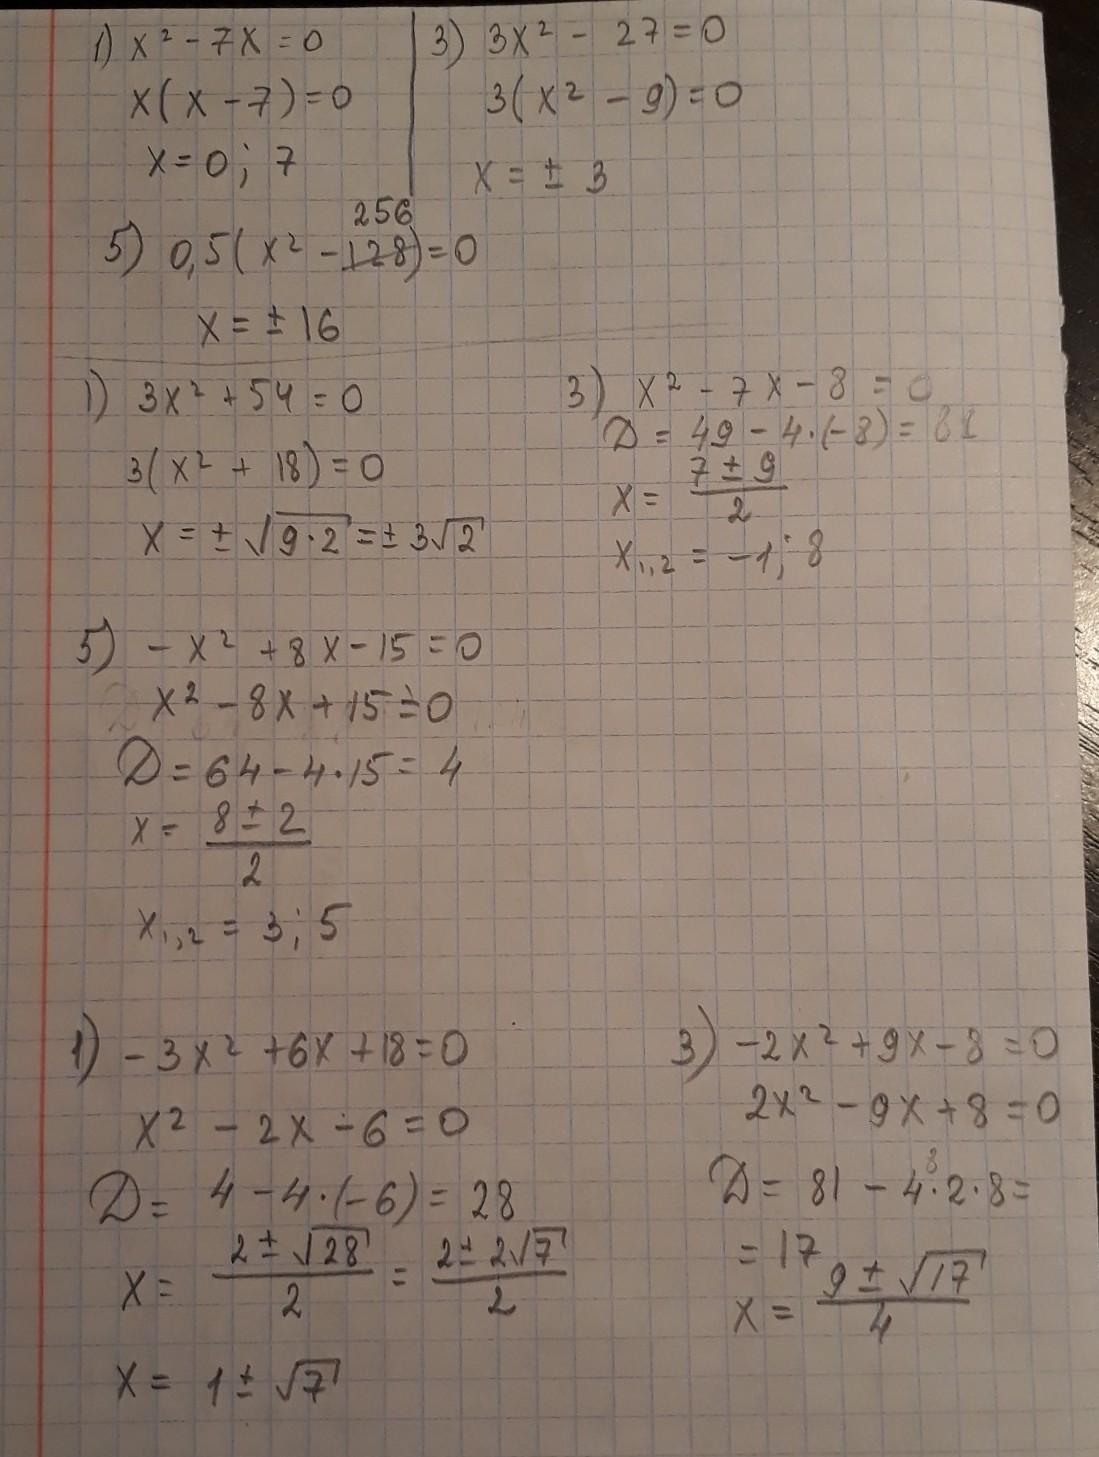 1) x² - 7x = 0
x(x - 7) = 0
x = 0; 7
3) 3x² - 27 = 0
3(x² - 9) = 0
x = ± 3
256
5) 0,5(x² - 128) = 0
x = ± 16
1) 3x² + 54 = 0
3(x² + 18) = 0
x = ± √9·2 = ± 3√2
3) x² - 7x - 8 = 0
D = 49 - 4·(-8) = 81
x = (7 ± 9)/2
x₁,₂ = -1; 8
5) - x² + 8x - 15 = 0
x² - 8x + 15 = 0
D = 64 - 4·15 = 4
x = (8 ± 2)/2
x₁,₂ = 3; 5
1) - 3x² + 6x + 18 = 0
x² - 2x - 6 = 0
D = 4 - 4·(-6) = 28
x = (2 ± √28)/2 = (2 ± 2√7)/2
x = 1 ± √7
3) -2x² + 9x - 8 = 0
2x² - 9x + 8 = 0
8
D = 81 - 4·2·8 =
= 17
x = (9 ± √17)/4